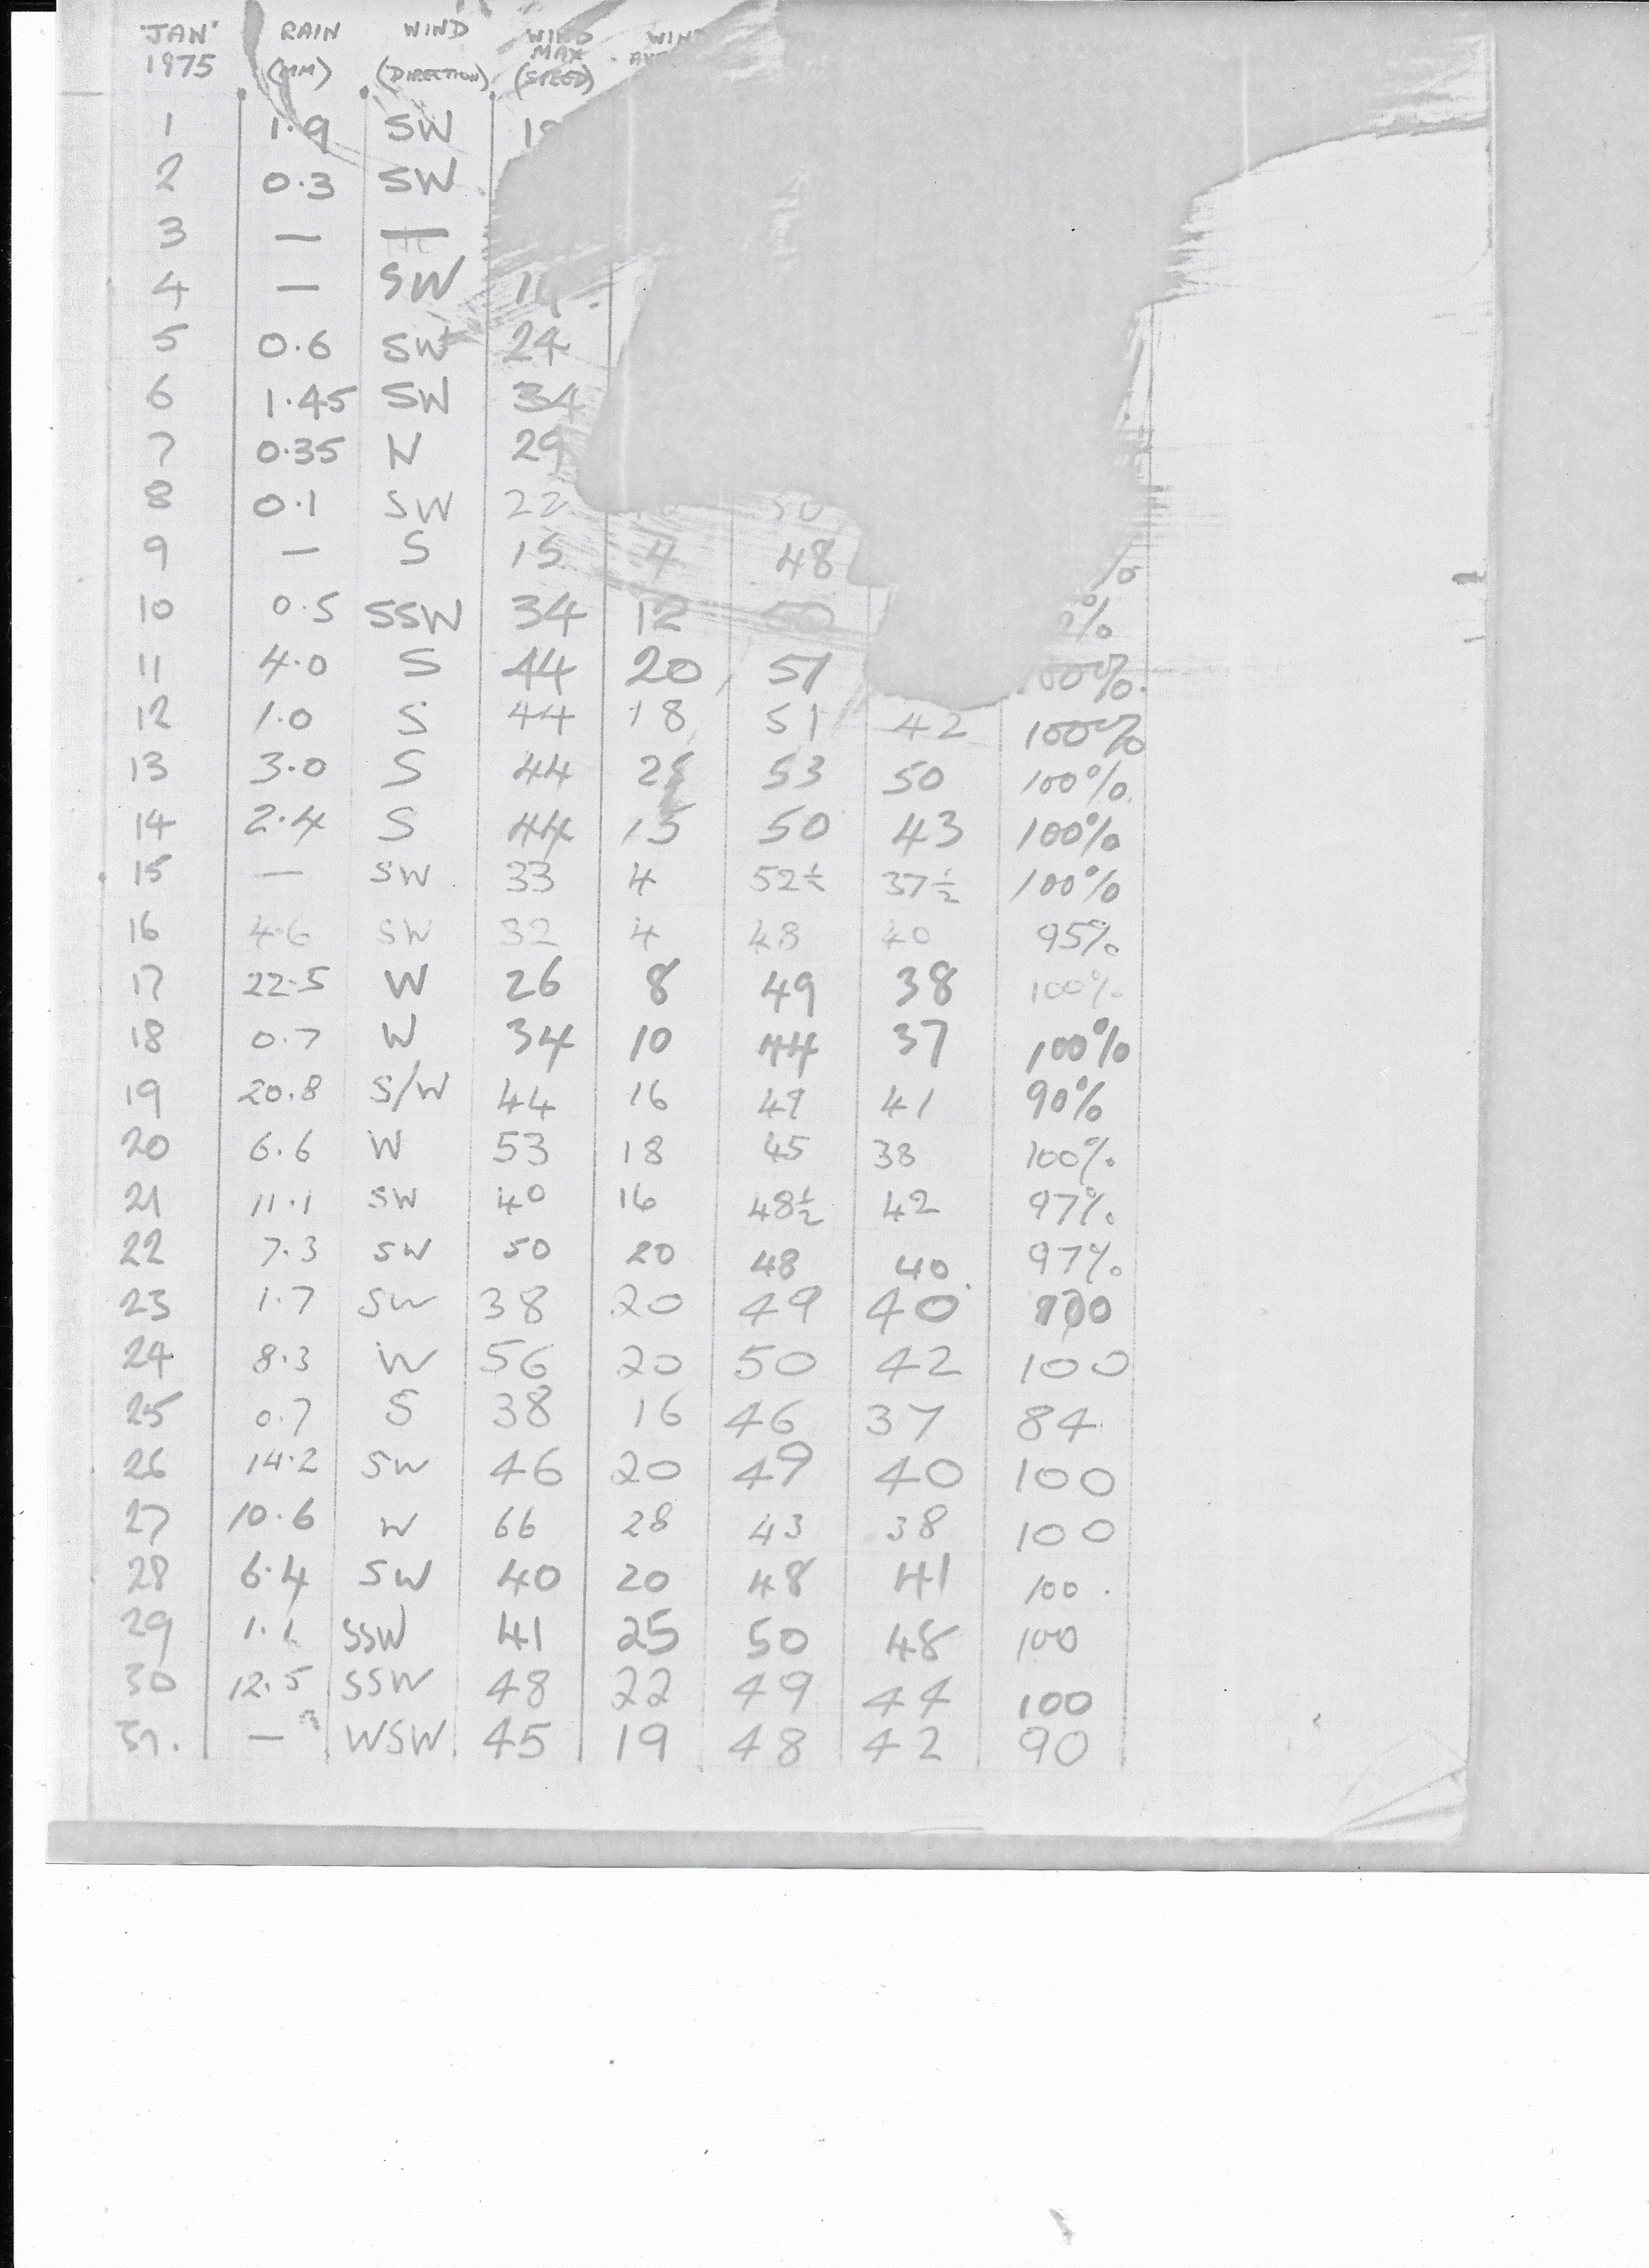 JAN RAIN WIND WIND
1975 (MM) (DIRECTION) MAX (SPEED)
1 1.9 SW
2 0.3 SW
3 — —
4 — SW
5 0.6 SW 24
6 1.45 SW 34
7 0.35 N 29
8 0.1 SW 22 50
9 — S 15 4 48
10 0.5 SSW 34 12 50 %
11 4.0 S 44 20 51 %
12 1.0 S 44 18 51 42 100%
13 3.0 S 44 53 50 100%
14 2.4 S 44 15 50 43 100%
15 — SW 33 4 52½ 37½ 100%
16 4.6 SW 32 4 48 40 95%
17 22.5 W 26 8 49 38 100%
18 0.7 W 34 10 44 37 100%
19 20.8 S/W 44 16 49 41 90%
20 6.6 W 53 18 45 38 100%
21 11.1 SW 40 16 48½ 42 97%
22 7.3 SW 50 20 48 40 97%
23 1.7 SW 38 20 49 40 100
24 8.3 W 56 20 50 42 100
25 0.7 S 38 16 46 37 84
26 14.2 SW 46 20 49 40 100
27 10.6 W 66 28 43 38 100
28 6.4 SW 40 20 48 41 100
29 1.1 SSW 41 25 50 48 100
30 12.5 SSW 48 22 49 44 100
31. — WSW 45 19 48 42 90